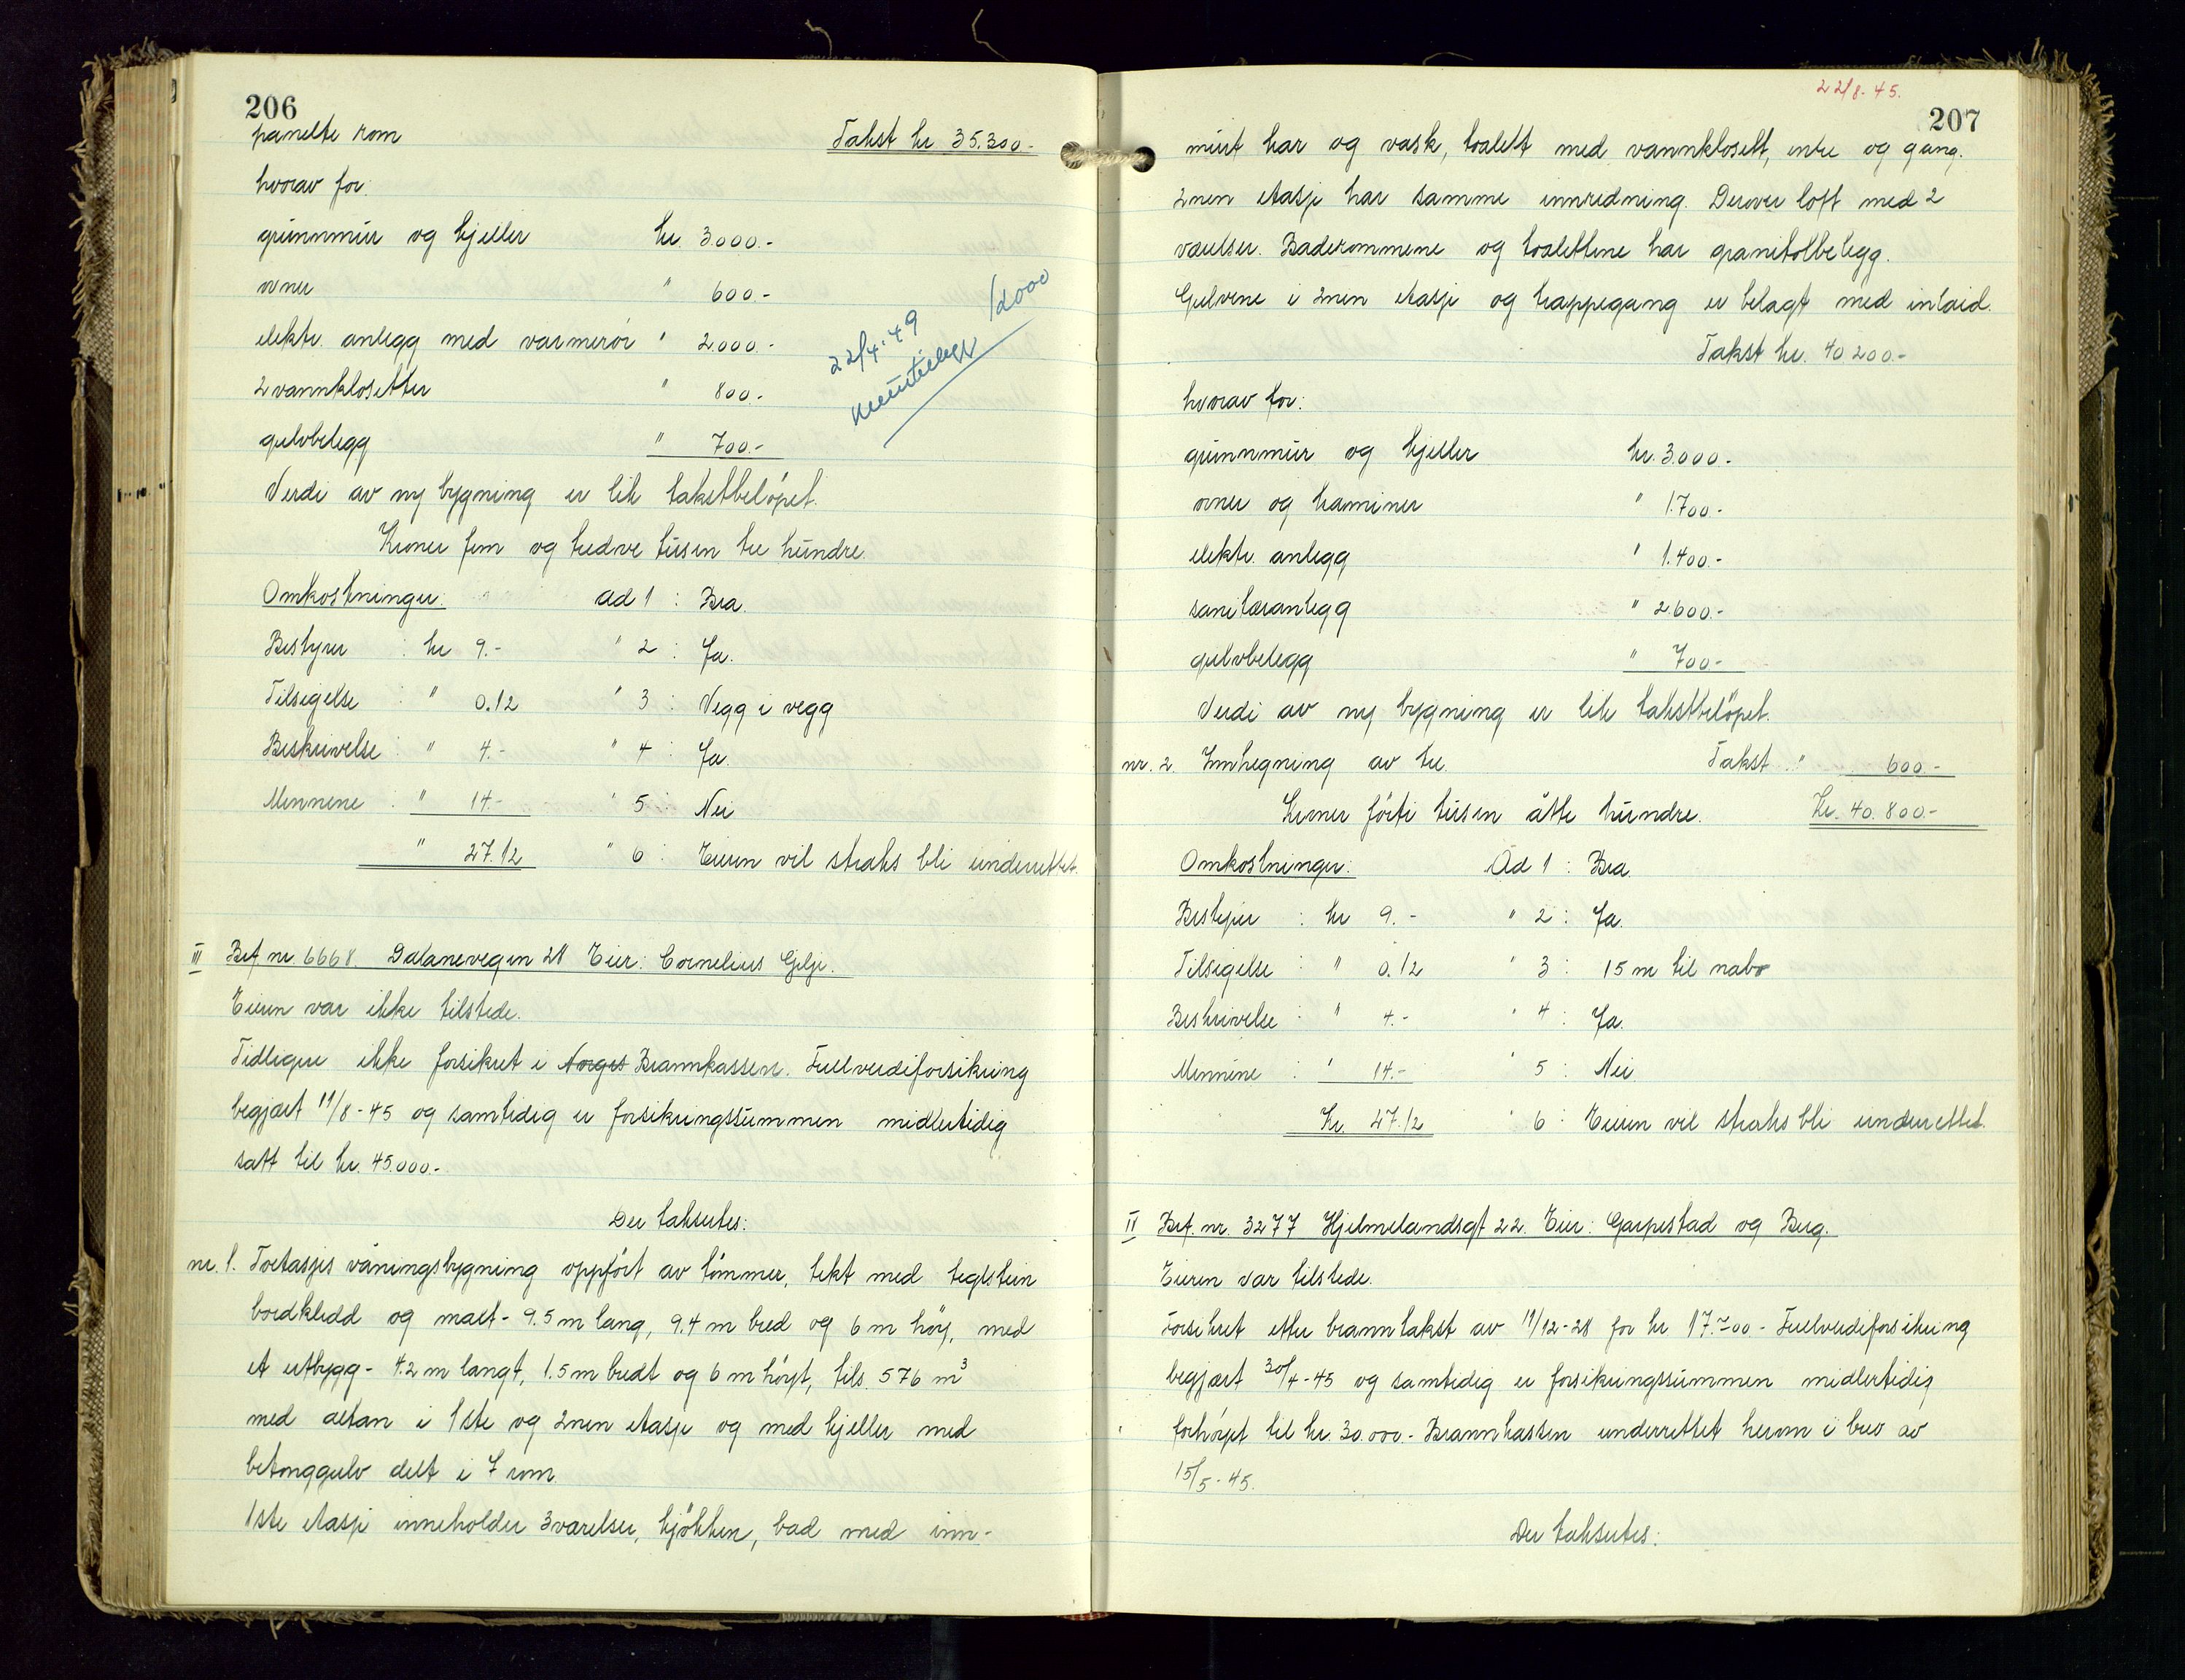 206
panelte rom Takst kr 35.300.-
hvorav for:
grunnmur og kjeller kr. 3.000.-
ovner " 600.-
elektr. anlegg med varmerör " 2.000.-
2 vannklosetter " 800.-
gulvbelegg " 700.-
22/4-49
/2000
Verdi av ny bygning er lik takstbelöpet.
Kroner fem og tredve tusen tre hundre.
Omkostninger: ad 1 : Bra.
Bestyrer : kr 9.- " 2 : Ja.
Tilsigelse : " 0.12 " 3 : Vegg i vegg
Beskrivelse : " 4.- " 4 : Ja.
Mennene : " 14.- " 5 : Nei
" 27.12 " 6 : Eieren vil straks bli underrettet.
III Brf. nr. 6668. Dalanevegen 28 Eier: Cornelius Gilje.
Eieren var ikke tilstede.
Tidligere ikke forsikret i Norges Brannkassen. Fullverdiforsikring
begjært 11/8-45 og samtidig er forsikringssummen midlertidig
satt til kr. 45.000.-
Der taksertes:
nr. 1. Toetasjes våningsbygning oppfört av tömmer, tekt med teglstein
bordkledd og malt - 9.5 m lang, 9.4 m bred og 6 m höy, med
et utbygg - 4.2 m langt, 1.5 m bredt og 6 m höyt, tils. 576 m³
med altan i 1ste og 2nen etasje og med kjeller med
betonggulv delt i 7 rom.
1ste etasje inneholder 3 værelser, kjökken, bad med inn-
22/8-45.
207
murt kar og vask, toalett med vannklosett, entre og gang.
2nen etasje har samme innredning. Derover loft med 2
værelser. Baderommene og toalettene har granitolbelegg.
Gulvene i 2nen etasje og trappegang er belagt med inlaid.
Takst kr. 40 200.-
hvorav for:
grunnmur og kjeller kr. 3.000.-
ovner og kaminer " 1.700.-
elektr. anlegg " 1.400.-
sanitæranlegg " 2.600.-
gulvbelegg " 700.-
Verdi av ny bygning er lik takstbelöpet.
nr. 2. Innhegning av tre. Takst " 600.-
Kroner förti tusen åtte hundre. Kr. 40.800.-
Omkostninger: Ad 1 : Bra.
Bestyrer : kr 9.- " 2 : Ja.
Tilsigelse : " 0.12 " 3 : 15 m til nabo
Beskrivelse : " 4.- " 4 : Ja.
Mennene : " 14.- " 5 : Nei
Kr. 27.12 " 6 : Eieren vil straks bli underrettet.
IV Brf. nr. 3277 Hjelmelandsgt 22. Eier: Garpestad og Berg.
Eieren var tilstede.
Forsikret etter branntakst av 11/12-28 for kr 17.700.- Fullverdiforsikring
begjært 30/4-45 og samtidig er forsikringssummen midlertidig
forhöyet til kr. 30.000.- Brannkassen underrettet herom i brev av
15/5-45.
Der taksertes: